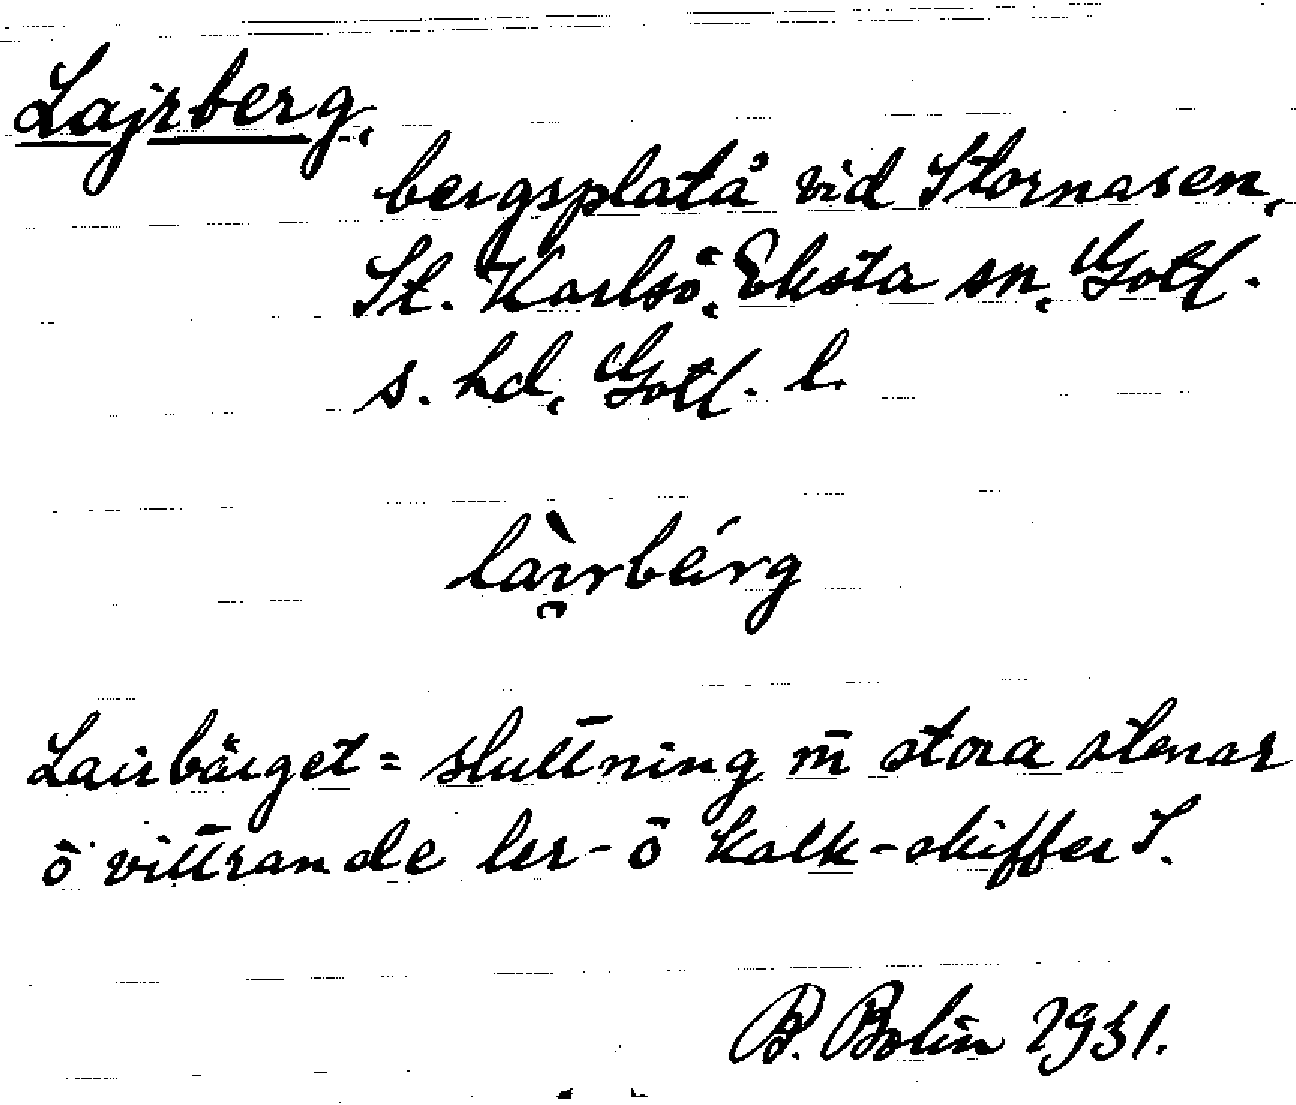 Lajrberg,
bergsplatå vid Stornasen,
St. Karlsö, Eksta sn, Gotl.
s. hd, Gotl. l.
làı̯rbérg
Lairbärget = sluttning m̄ stora stenar
ō vittrande ler- ō kalk-skiffer S.
B. Bolin 1931.